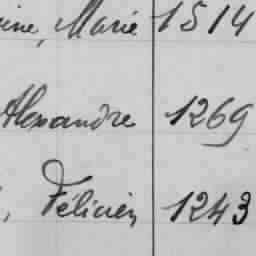 ine, Marie 1514
Alexandre 1269
, Félicien 1243